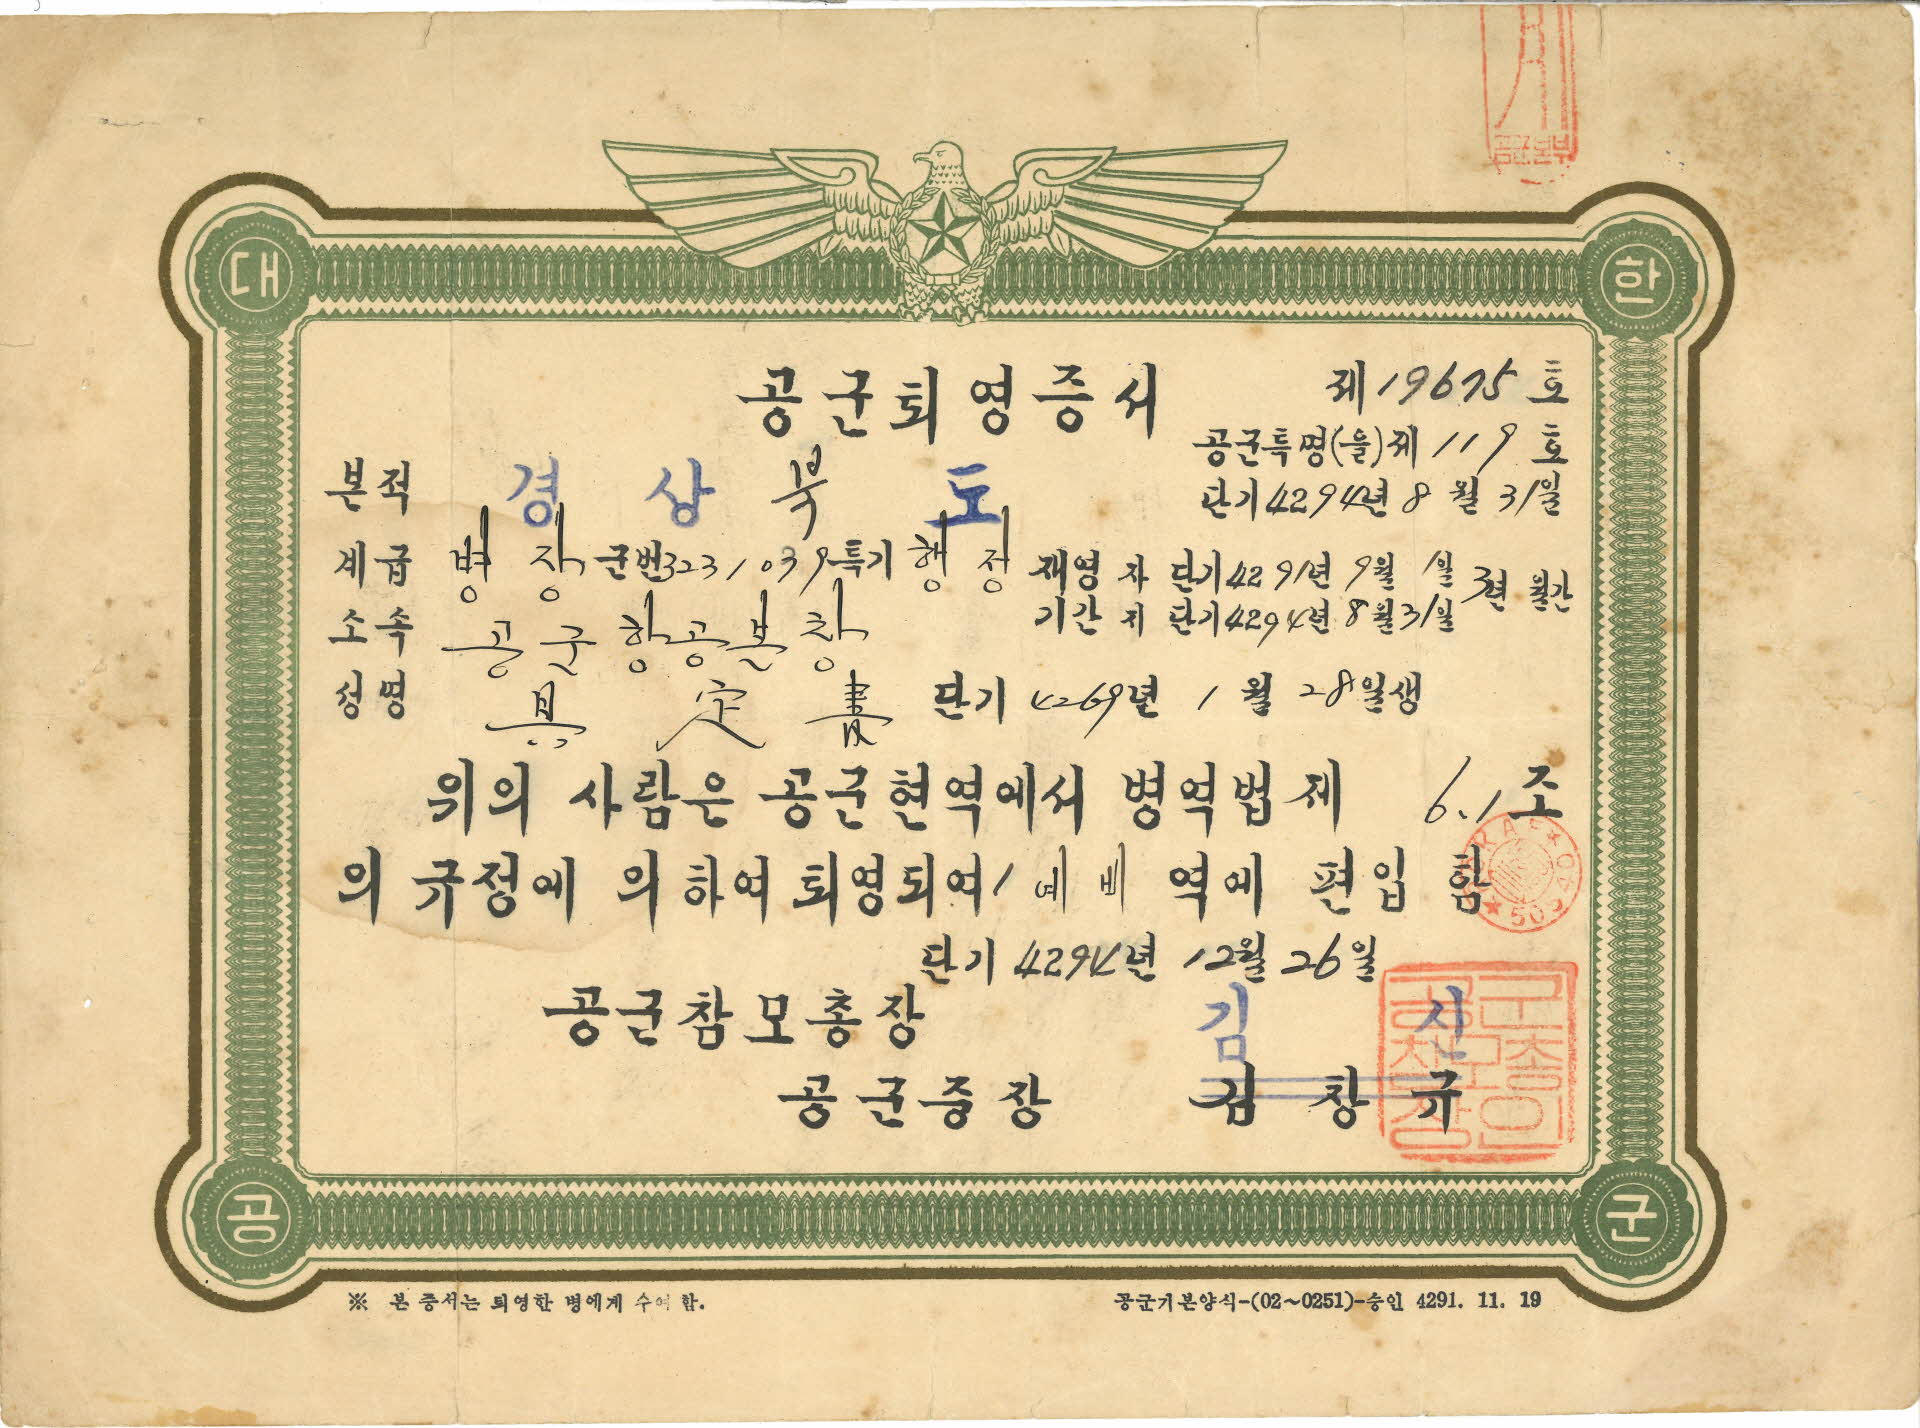 공군본부
대 한
공군퇴영증서
제 19675 호
공군특명(을)제 119 호
단기 4294년 8월 31일
본적 경상북도
계급 병장 군번 3231039 특기 행정
재영 자 단기 4291년 9월 1일
기간 지 단기 4294년 8월 31일
3년 월간
소속 공군항공본창
성명 具定書 단기 4269년 1월 28일생
위의 사람은 공군현역에서 병역법 제 6.1조
의 규정에 의하여 퇴영되여 예비역에 편입함
단기 4294년 12월 26일
공군참모총장 김 신
공군중장 김창규
공군참모총장인
공 군
※ 본 증서는 퇴영한 병에게 수여함.
공군기본양식-(02~0251)-승인 4291. 11. 19